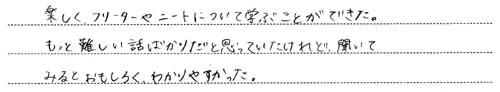 楽しく、フリーターやニートについて学ぶことができた。
もっと難しい話ばかりだと思っていたけれど、聞いて
みるとおもしろく、わかりやすかった。